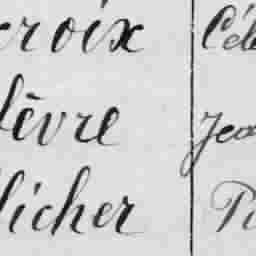 croix Cél
lèvre Jea
licher Pi